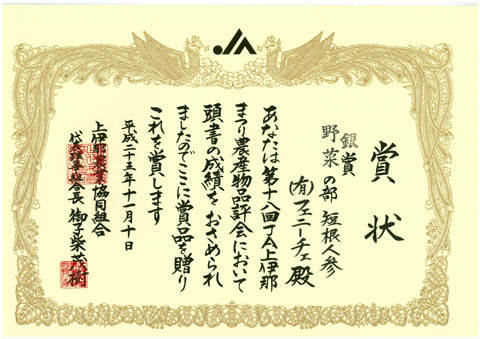 賞状
銀賞
野菜の部 短根人参
㈲フェニーチェ殿
あなたは第十八回JA上伊那
まつり農産物品評会において
頭書の成績をおさめられ
ましたのでここに賞品を贈り
これを賞します
平成二十五年十一月十日
上伊那農業協同組合
代表理事組合長 御子柴茂樹